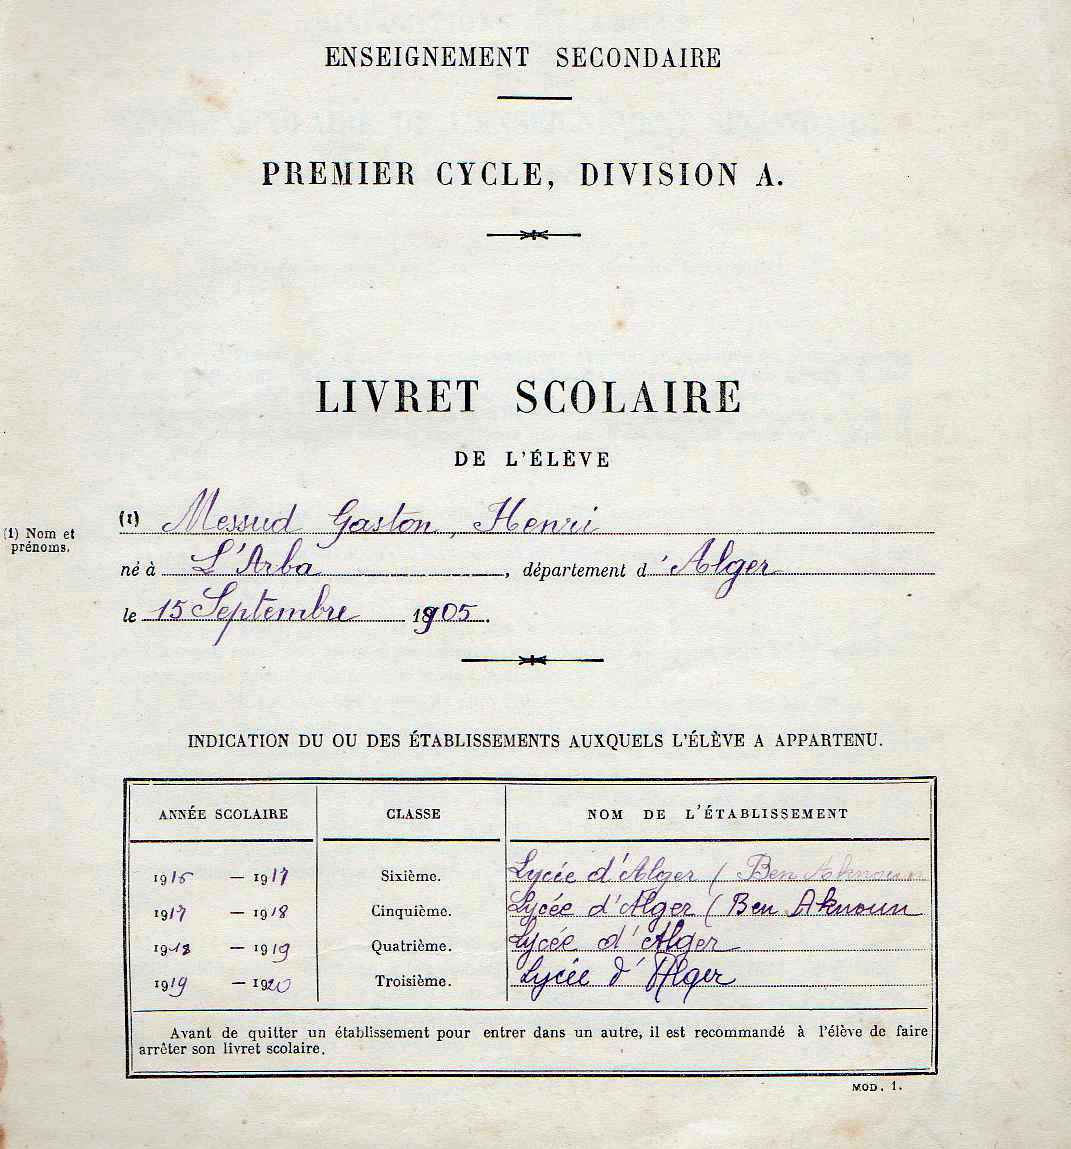 ENSEIGNEMENT SECONDAIRE
PREMIER CYCLE, DIVISION A.
LIVRET SCOLAIRE
DE L'ÉLÈVE
(1) Nom et
prénoms.
(1) Messud Gaston, Henri
né à L'Arba, département d'Alger
le 15 Septembre 1905.
INDICATION DU OU DES ÉTABLISSEMENTS AUXQUELS L'ÉLÈVE A APPARTENU.
ANNÉE SCOLAIRE CLASSE NOM DE L'ÉTABLISSEMENT
1916 — 1917 Sixième. Lycée d'Alger (Ben Aknoun
1917 — 1918 Cinquième. Lycée d'Alger (Ben Aknoun
1918 — 1919 Quatrième. Lycée d'Alger
1919 — 1920 Troisième. Lycée d'Alger
Avant de quitter un établissement pour entrer dans un autre, il est recommandé à l'élève de faire
arrêter son livret scolaire.
MOD. 1.